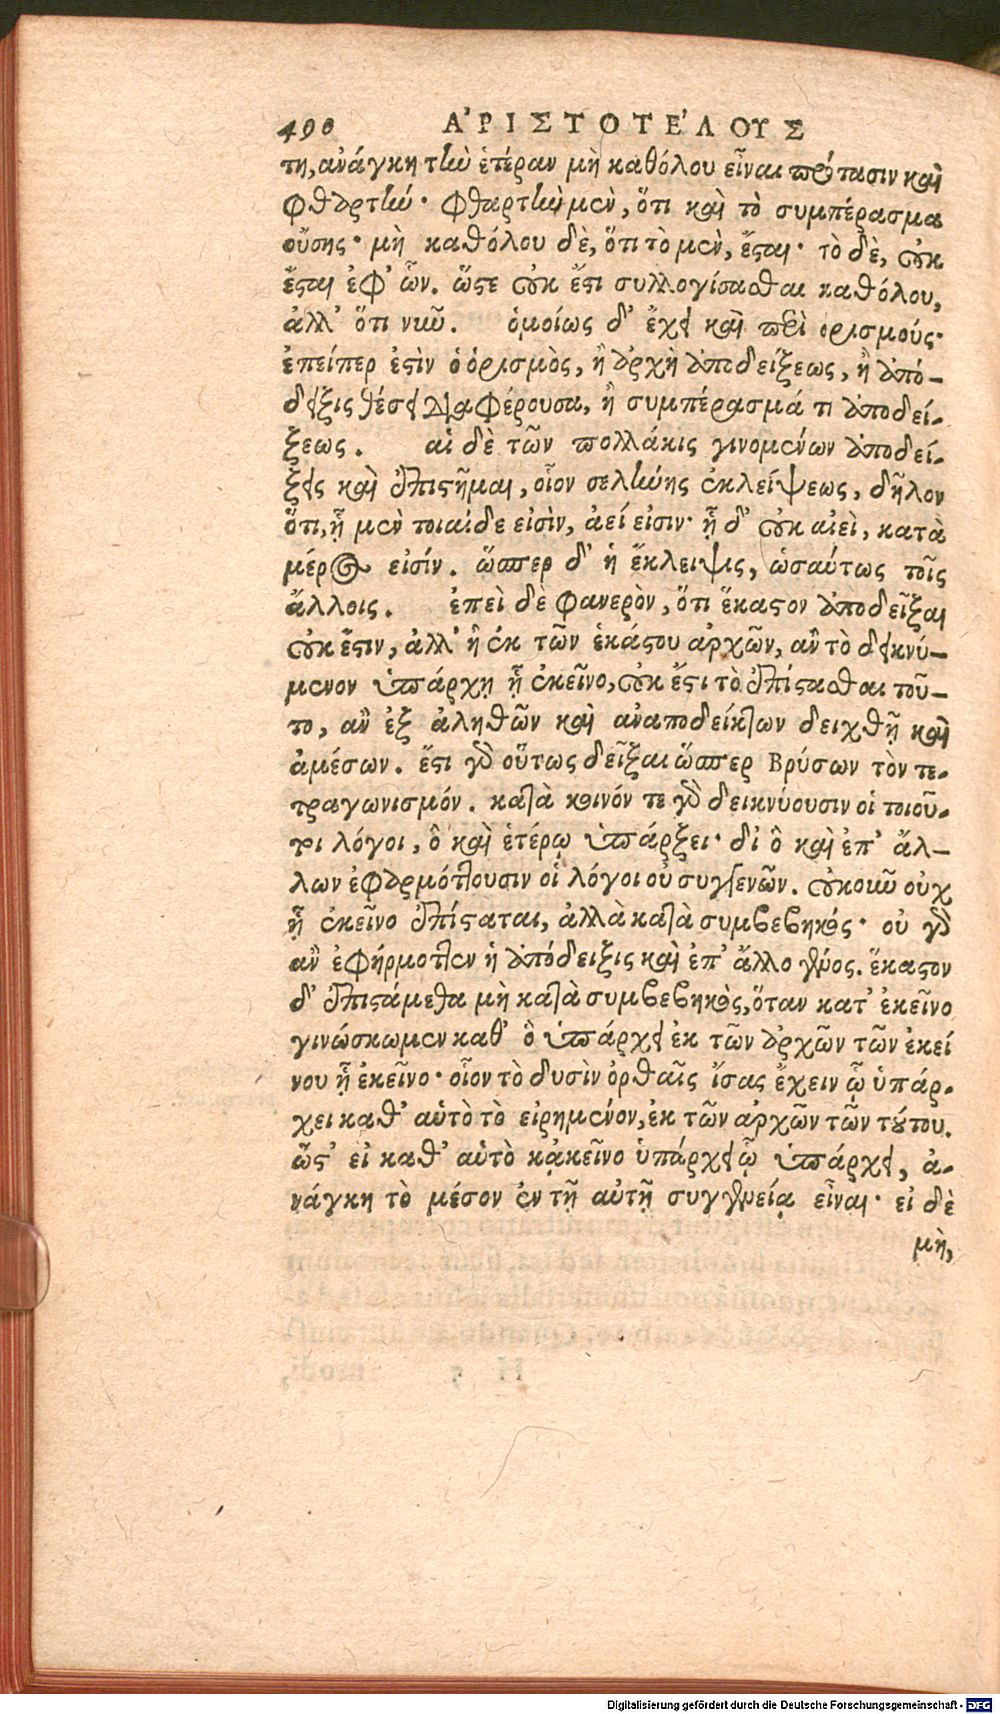 490 ΑʼΡΙΣΤΟΤΕʹΛΟΥΣ
τη, ἀνάγκη τὴν ἑτέραν μὴ καθόλου εἶναι πρότασιν καὶ
φθαρτήν· φθαρτὴν μὲν, ὅτι καὶ τὸ συμπέρασμα
οὔσης· μὴ καθόλου δὲ, ὅτι τὸ μὲν, ἔσται· τὸ δὲ, οὐκ
ἔσται ἐφ' ὧν. ὥστε οὐκ ἔστι συλλογίσασθαι καθόλου,
ἀλλ' ὅτι νῦν. ὁμοίως δ' ἔχει καὶ περὶ ὁρισμούς·
ἐπείπερ ἐστὶν ὁ ὁρισμὸς, ἢ ἀρχὴ ἀποδείξεως, ἢ ἀπό-
δειξις θέσει διαφέρουσα, ἢ συμπέρασμά τι ἀποδεί-
ξεως. αἱ δὲ τῶν πολλάκις γινομένων ἀποδεί-
ξεις καὶ ἐπιστῆμαι, οἷον σελήνης ἐκλείψεως, δῆλον
ὅτι, ᾗ μὲν τοιαίδε εἰσὶν, ἀεί εἰσιν· ᾗ δ' οὐκ αἰεὶ, κατὰ
μέρος εἰσίν. ὥσπερ δ' ἡ ἔκλειψις, ὡσαύτως τοῖς
ἄλλοις. ἐπεὶ δὲ φανερὸν, ὅτι ἕκαστον ἀποδεῖξαι
οὐκ ἔστιν, ἀλλ' ἢ ἐκ τῶν ἑκάστου ἀρχῶν, ἂν τὸ δεικνύ-
μενον ὑπάρχῃ ᾗ ἐκεῖνο, οὐκ ἔστι τὸ ἐπίστασθαι τοῦ-
το, ἂν ἐξ ἀληθῶν καὶ ἀναποδείκτων δειχθῇ καὶ
ἀμέσων. ἔστι γὰρ οὕτως δεῖξαι ὥσπερ Βρύσων τὸν τε-
τραγωνισμόν. κατὰ κοινόν τε γὰρ δεικνύουσιν οἱ τοιοῦ-
τοι λόγοι, ὃ καὶ ἑτέρῳ ὑπάρξει· δι' ὃ καὶ ἐπ' ἄλ-
λων ἐφαρμόττουσιν οἱ λόγοι οὐ συγγενῶν. οὐκοῦν οὐχ
ᾗ ἐκεῖνο ἐπίσταται, ἀλλὰ κατὰ συμβεβηκός· οὐ γὰρ
ἂν ἐφήρμοττεν ἡ ἀπόδειξις καὶ ἐπ' ἄλλο γένος. ἕκαστον
δ' ἐπιστάμεθα μὴ κατὰ συμβεβηκὸς, ὅταν κατ' ἐκεῖνο
γινώσκωμεν καθ' ὃ ὑπάρχει ἐκ τῶν ἀρχῶν τῶν ἐκεί
νου ᾗ ἐκεῖνο· οἷον τὸ δυσὶν ὀρθαῖς ἴσας ἔχειν ᾧ ὑπάρ-
χει καθ' αὑτὸ τὸ εἰρημένον, ἐκ τῶν ἀρχῶν τῶν τούτου.
ὥστ' εἰ καθ' αὑτὸ κἀκεῖνο ὑπάρχει ᾧ ὑπάρχει, ἀ-
νάγκη τὸ μέσον ἐν τῇ αὐτῇ συγγενείᾳ εἶναι· εἰ δὲ
μὴ,
Digitalisierung gefördert durch die Deutsche Forschungsgemeinschaft - DFG